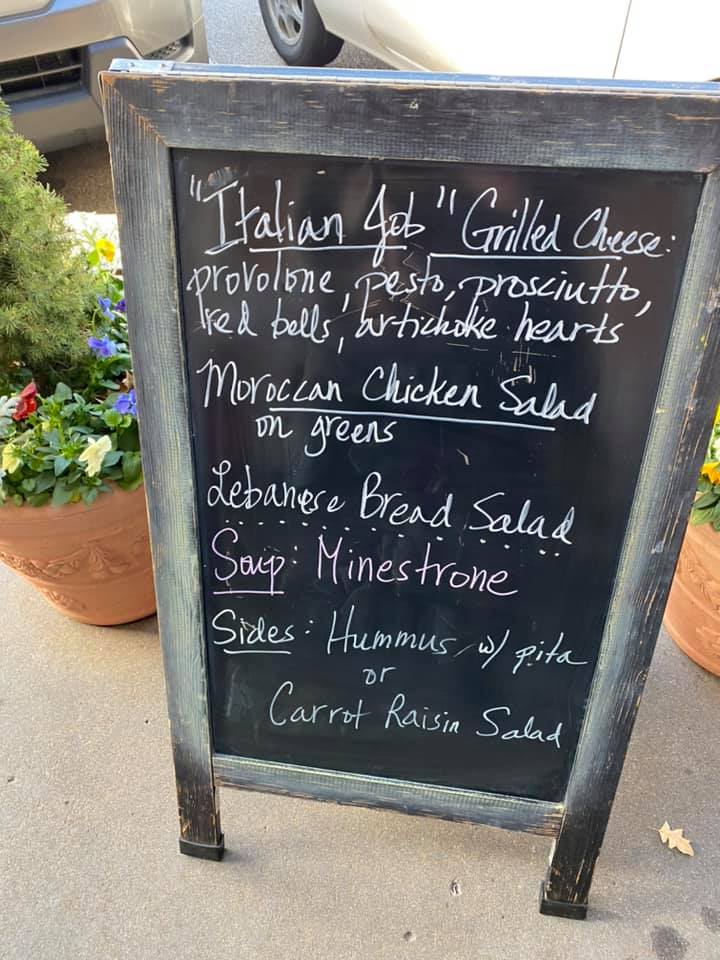 "Italian Job" Grilled Cheese:
provolone, pesto, prosciutto,
red bells, artichoke hearts
Moroccan Chicken Salad
on greens
Lebanese Bread Salad
Soup: Minestrone
Sides: Hummus w/ pita
or
Carrot Raisin Salad